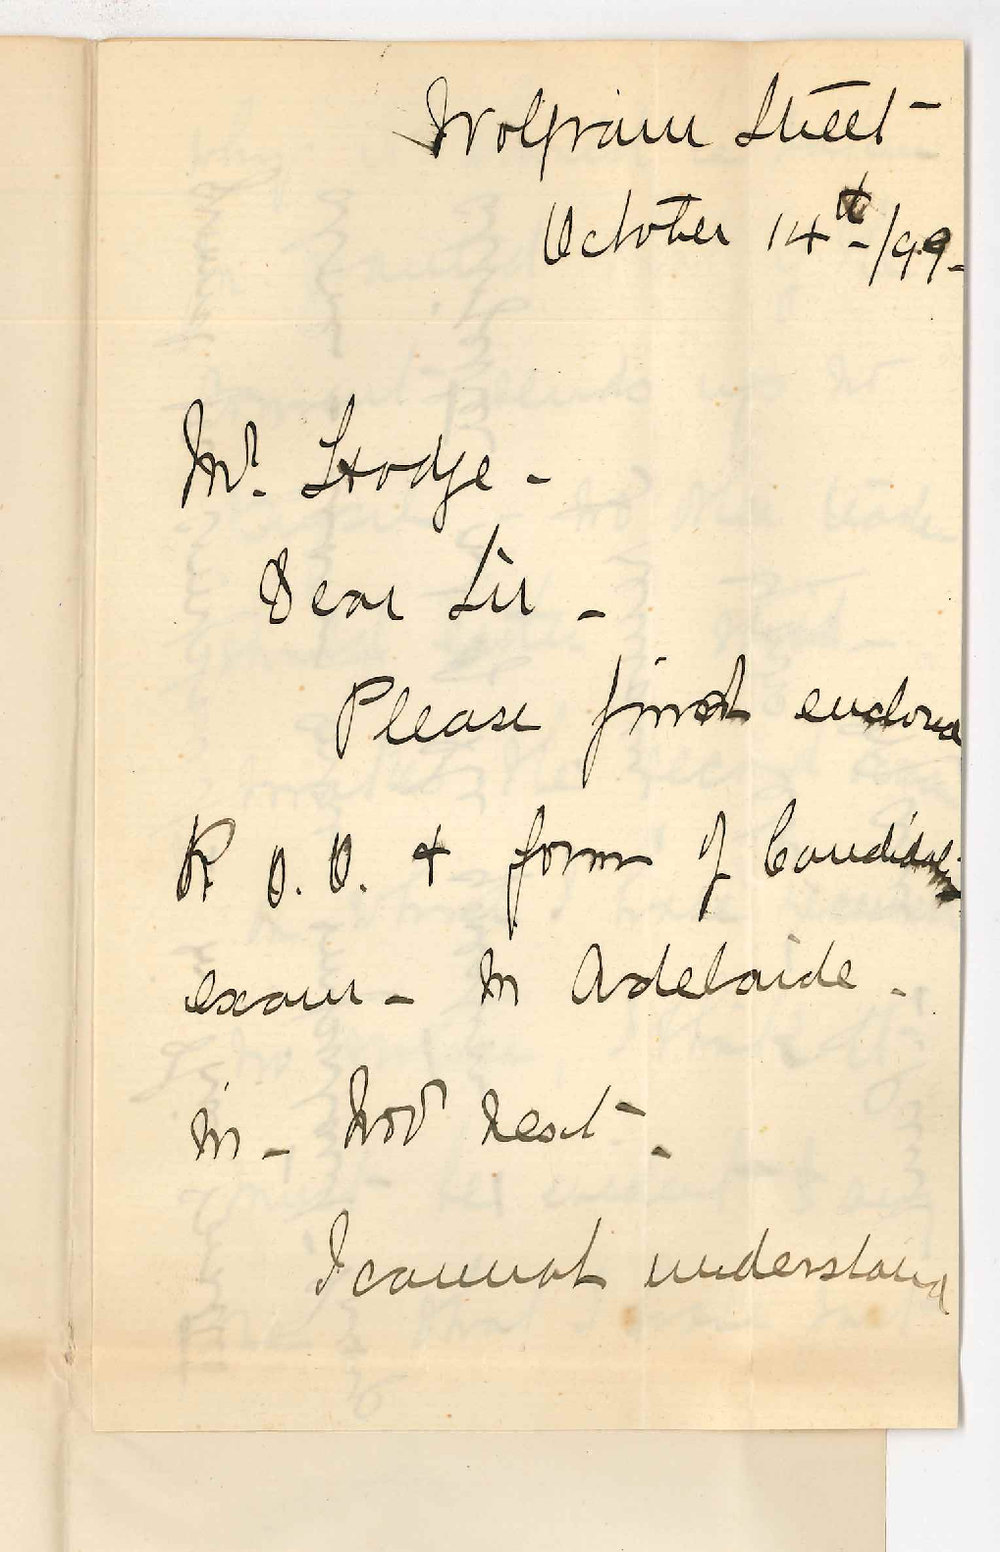 Wolfram Street -
October 14th - /99 -
Mr. Hodge -
Dear Sir -
Please find enclosed
P. O. O. & form of Candidate
exam - in Adelaide -
in - Novr next -
I cannot understand